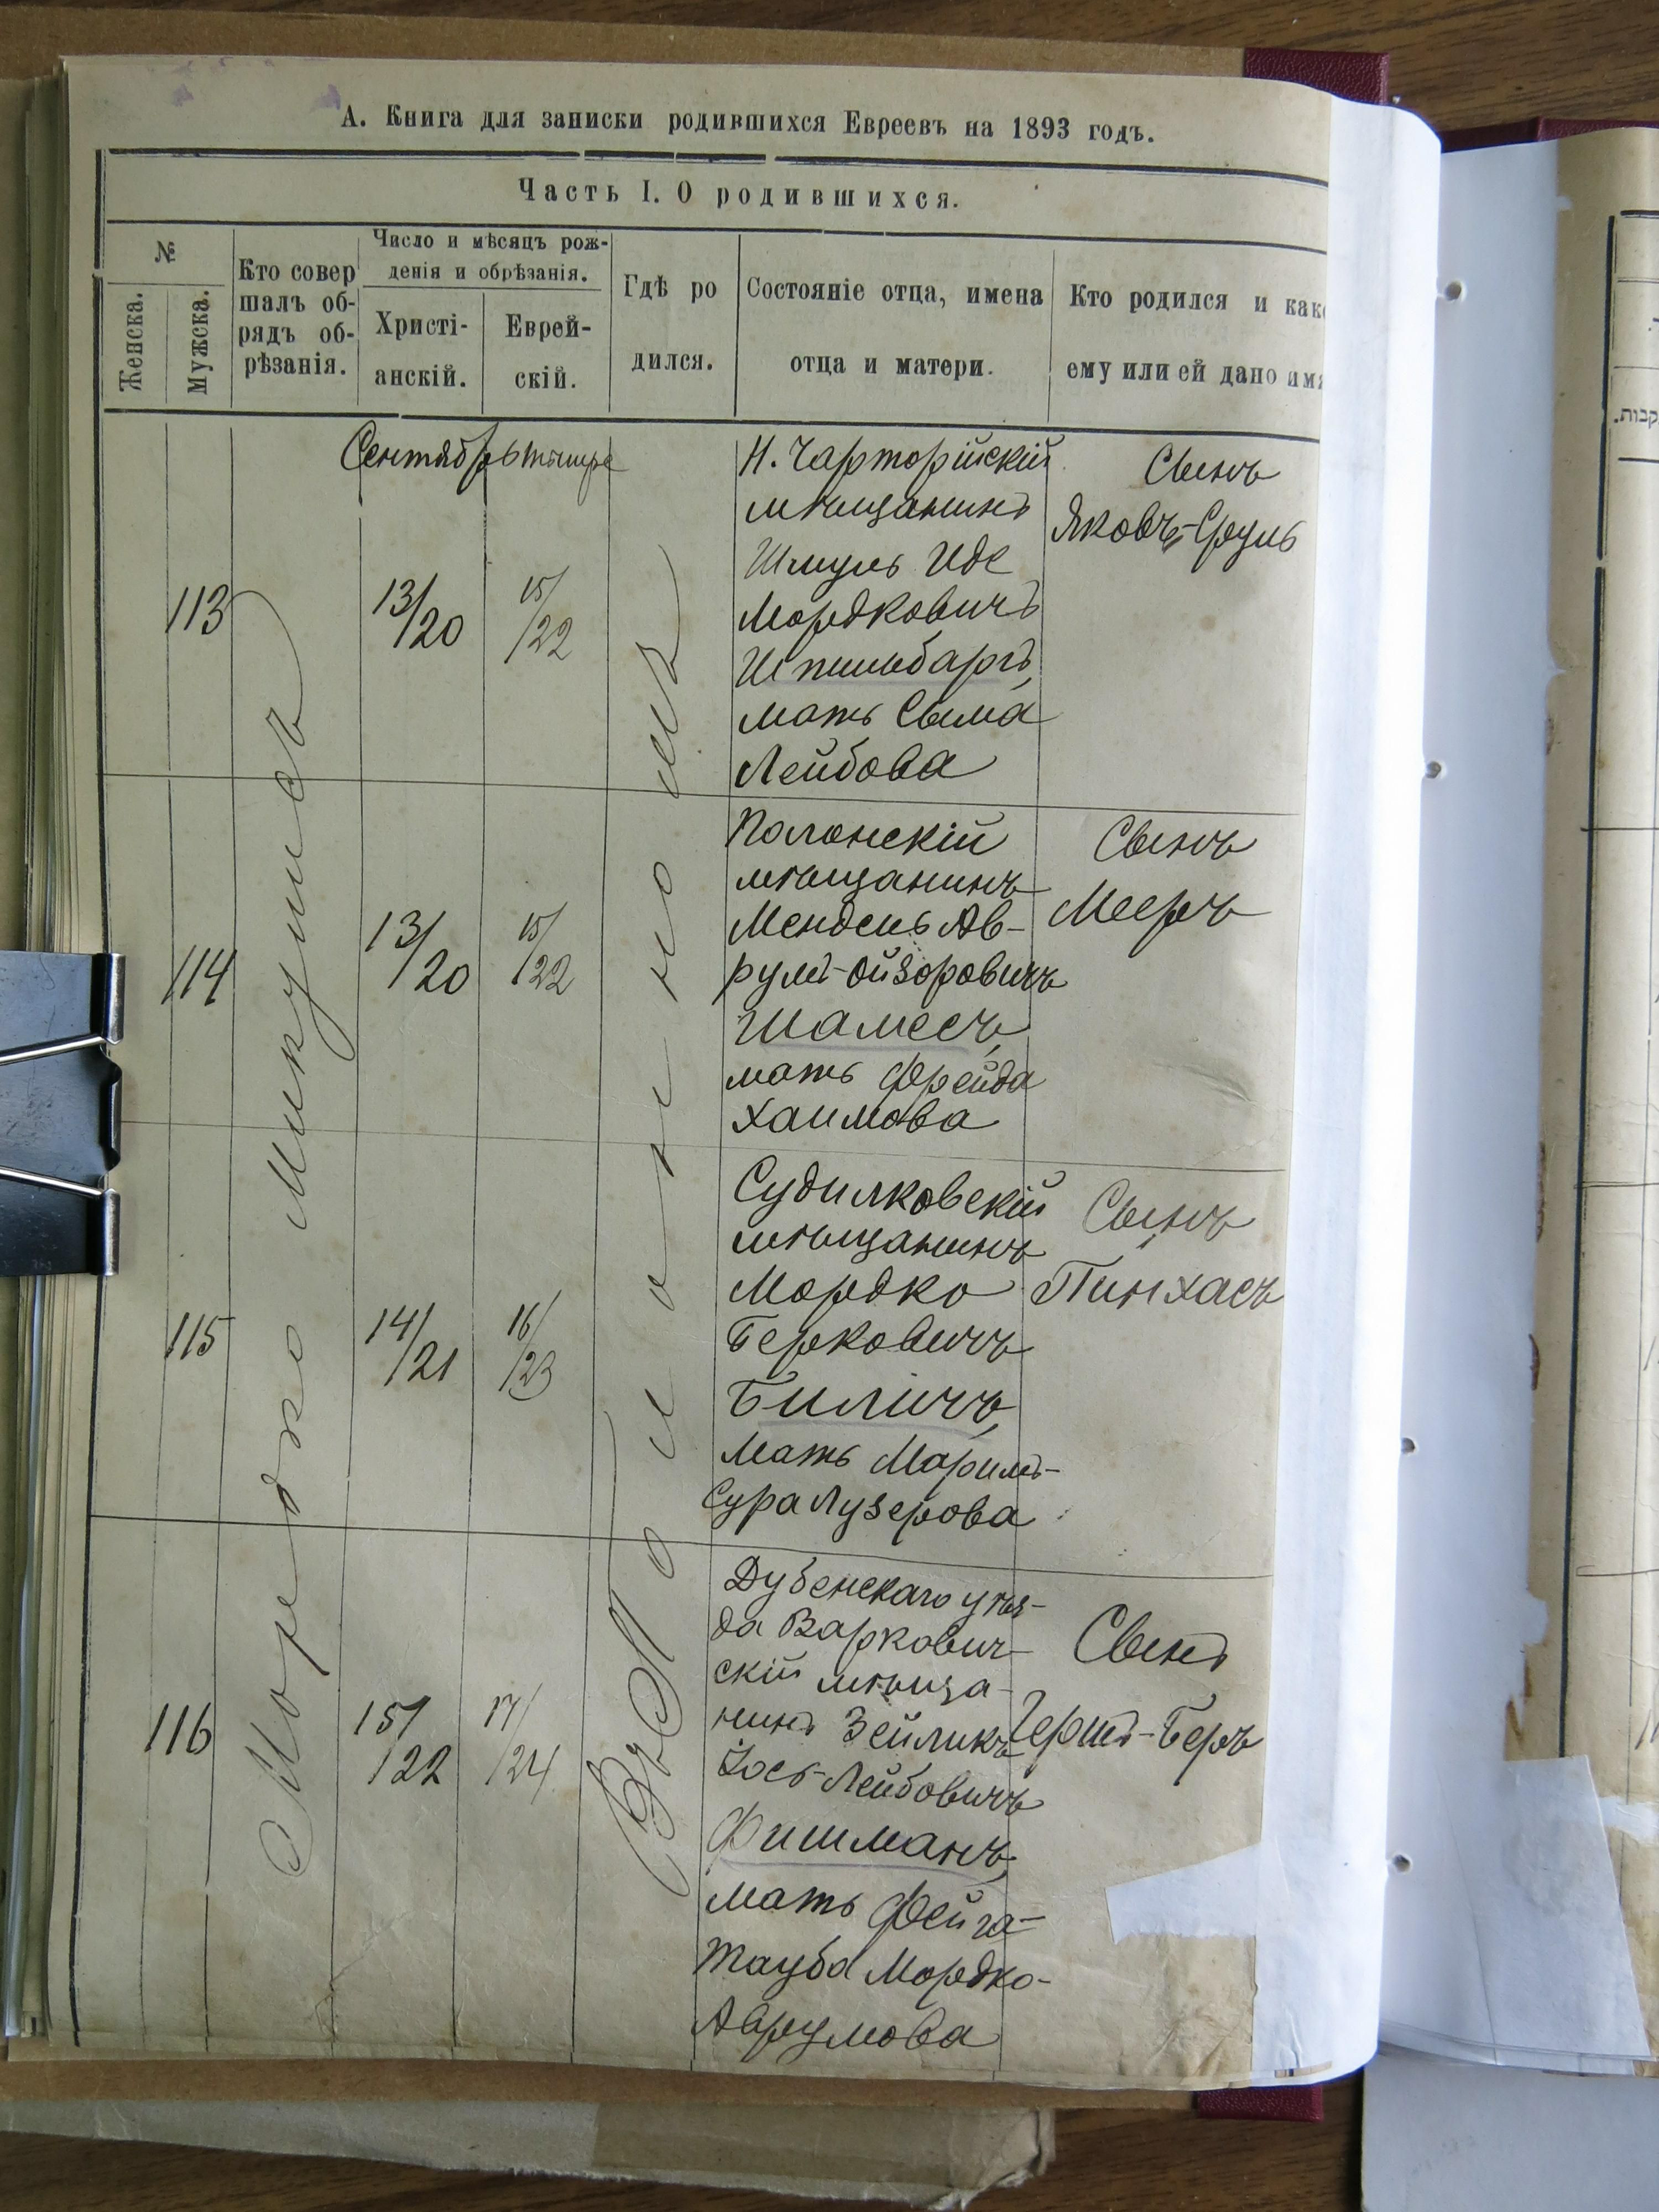 А. Книга для записки родившихся Евреевъ на 1893 годъ.
Часть I. О родившихся.
№
Женска.
Мужска.
Кто совер
шалъ об-
рядъ об-
рѣзанія.
Число и мѣсяцъ рож-
денія и обрѣзанія.
Христі-
анскій.
Еврей-
скій.
Гдѣ ро
дился.
Состояніе отца, имена
отца и матери.
Кто родился и как
ему или ей дано имя
Сентябрь тишре
Мордко Микулисъ
Въ Полонномъ
113
13/20
15/22
Н. Чарторійскій
мѣщанинъ
Шмуль Иде
Мордковичъ
Шпильбаргъ,
мать Сыма
Лейбова
Сынъ
Яковъ-Сруль
114
13/20
15/22
Полонскій
мѣщанинъ
Мендель Ав-
румъ-Ойзоровичъ
Шамесъ,
мать Фрейда
Хаимова
Сынъ
Мееръ
115
14/21
16/23
Судилковскій
мѣщанинъ
Мордко
Берковичъ
Биличъ,
Мать Маримъ-
Сура Лузерова
Сынъ
Пинхасъ
116
15/22
17/24
Дубенскаго уѣз-
да Варкович-
скій мѣща-
нинъ Зейликъ
Іось-Лейбовичъ
Фишманъ,
мать Фейга-
Тауба Мордко-
Аврумова
Сынъ
Гершъ-Беръ
קבות.